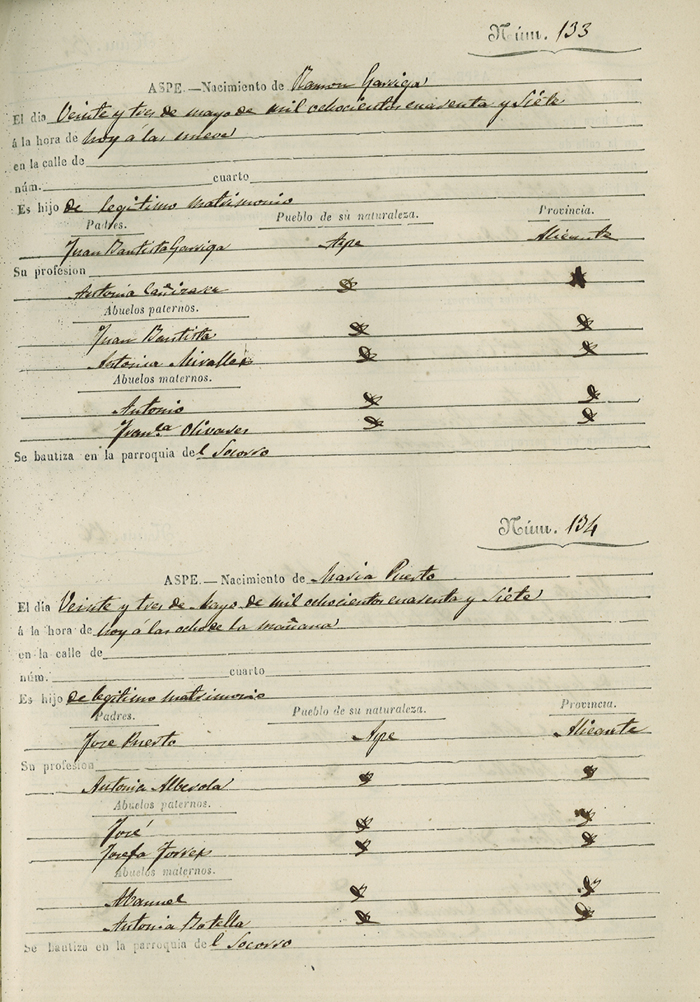 Núm. 133
ASPE.—Nacimiento de Ramon Garriga
El dia Veinte y tres de mayo de mil ochocientos cuarenta y Siéte
á la hora de hoy á las nueve
en la calle de
núm. cuarto
Es hijo de legitimo matrimonio
Padres. Pueblo de su naturaleza. Provincia.
Juan Bautista Garriga Aspe Alicante
Su profesion
Antonia Cañizares
Abuelos paternos.
Juan Bautista
Antonia Miralles
Abuelos maternos.
Antonio
Fran.ca Olivares
Se bautiza en la parroquia del Socorro
Núm. 134
ASPE.—Nacimiento de Maria Puerto
El dia Veinte y tres de Mayo de mil ochocientos cuarenta y Siéte
á la hora de hoy á las ocho de la mañana
en la calle de
núm. cuarto
Es hijo de legitimo matrimonio
Padres. Pueblo de su naturaleza. Provincia.
José Puerto Aspe Alicante
Su profesion
Antonia Alberola
Abuelos paternos.
José
Josefa Torres
Abuelos maternos.
Manuel
Antonia Botella
Se bautiza en la parroquia del Socorro